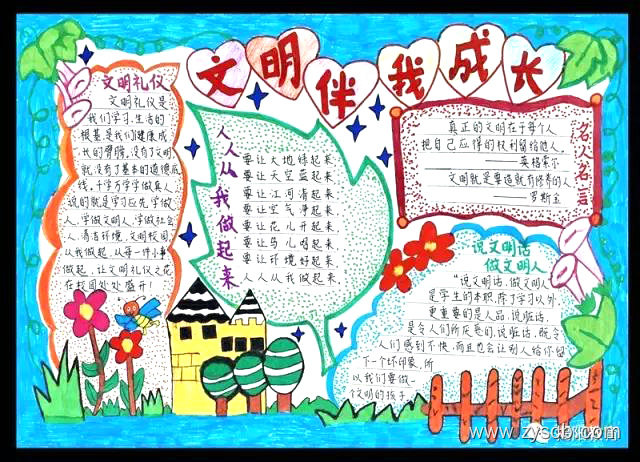 文明伴我成长
文明礼仪
文明礼仪是
我们学习、生活的
根基,是我们健康成
长的臂膀。没有了文明
就没有了基本的道德底
线。千学万学学做真人,
说的就是学习应先学做
人,学做文明人,学做社会
人。清洁环境,文明校园,
从我做起,从每一件小事
做起,让文明礼仪之花
在校园处处盛开!
人人从我做起来
要让大地绿起来
要让天空蓝起来
要让江河清起来
要让空气净起来
要让花儿开起来
要让鸟儿唱起来
要让环境好起来
人人从我做起来
名人名言
真正的文明在于每个人
把自己应得的权利留给他人。
——英格索尔
文明就是要造就有修养的人
——罗斯金
说文明话
做文明人
“说文明话,做文明人
是学生的本职,除了学习以外,
更重要的是人品,说脏话,
是令人们所厌恶的,说脏话,既令
人们感到不快,而且也会让别人给你留
下一个坏印象,所
以我们要做一
个文明的孩子
www.zyscbj.com